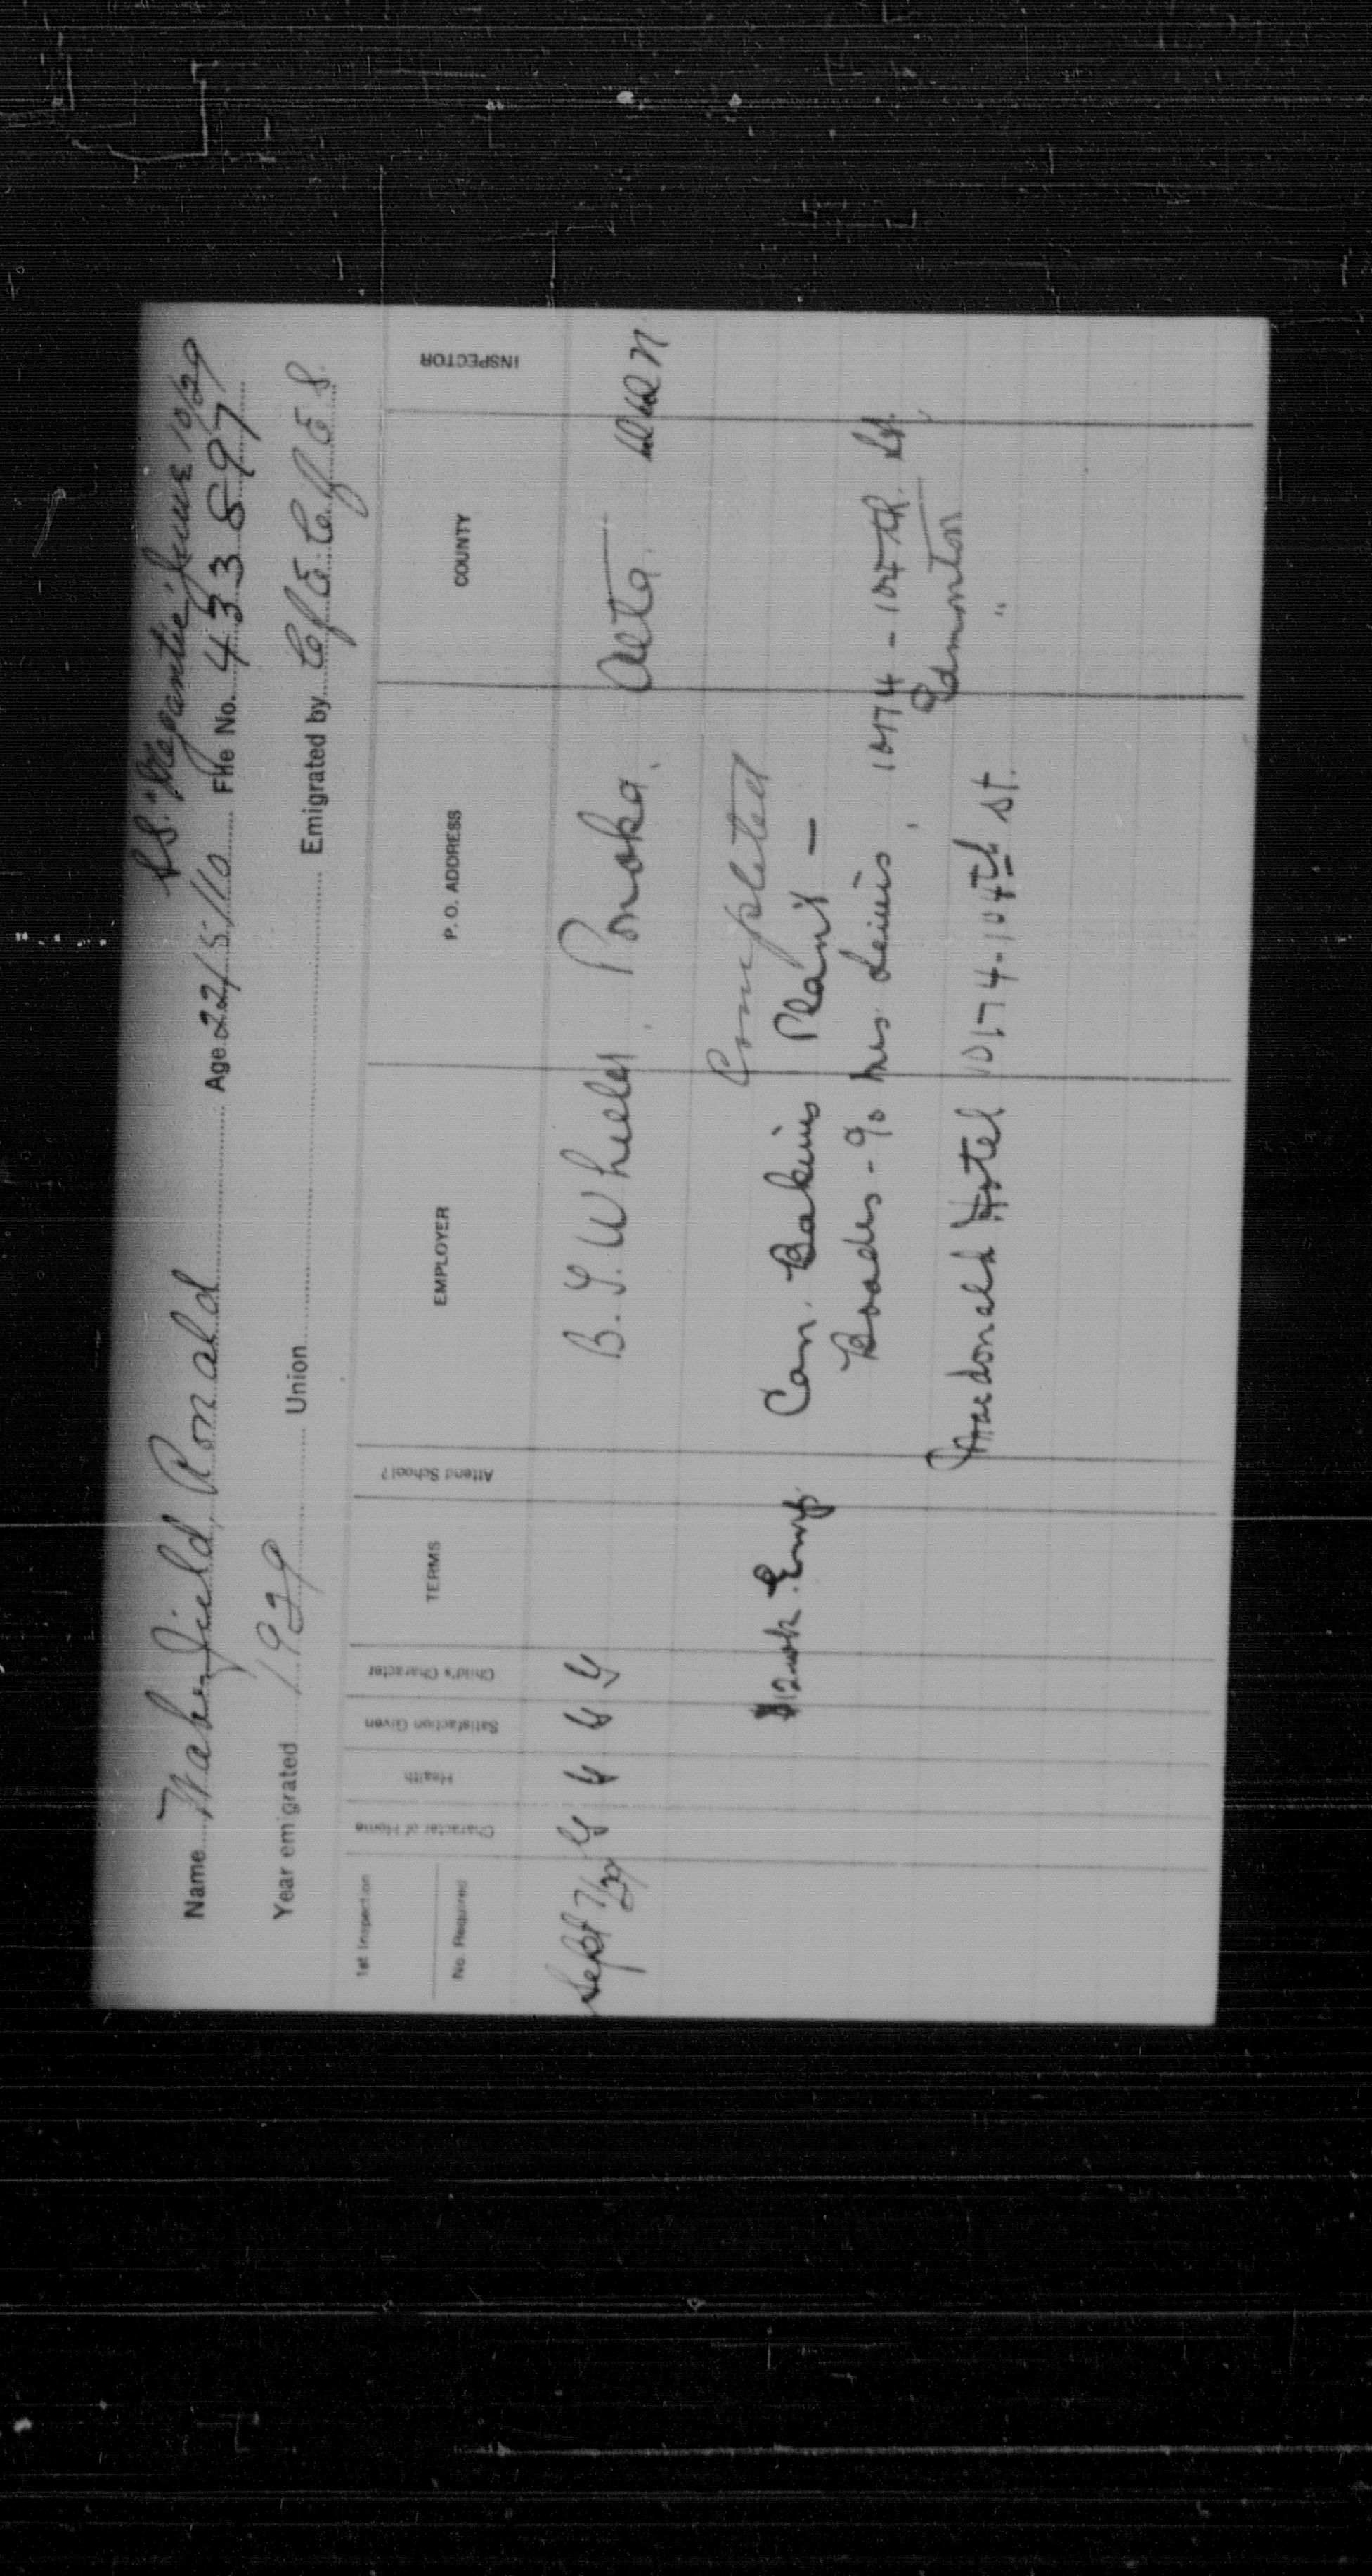 S.S. "Megantic" June 10/29
Name Wakefield, Ronald Age 22/5/10 File No. 433897
Year emigrated 1929 Union Emigrated by
1st Inspection
No. Required Character of Home Health Satisfaction Given Child's Character TERMS Attend School? EMPLOYER P. O. ADDRESS COUNTY INSPECTOR
Sept 7/29 G G G G B. Wheeler Ponoka Alta
Completed
$12 wk. Emp. Can. Bakins Plant -
Boades - c/o Mrs 10174 - 104th. St.
Edmonton
Macdonald Hotel 10174-104th St. "